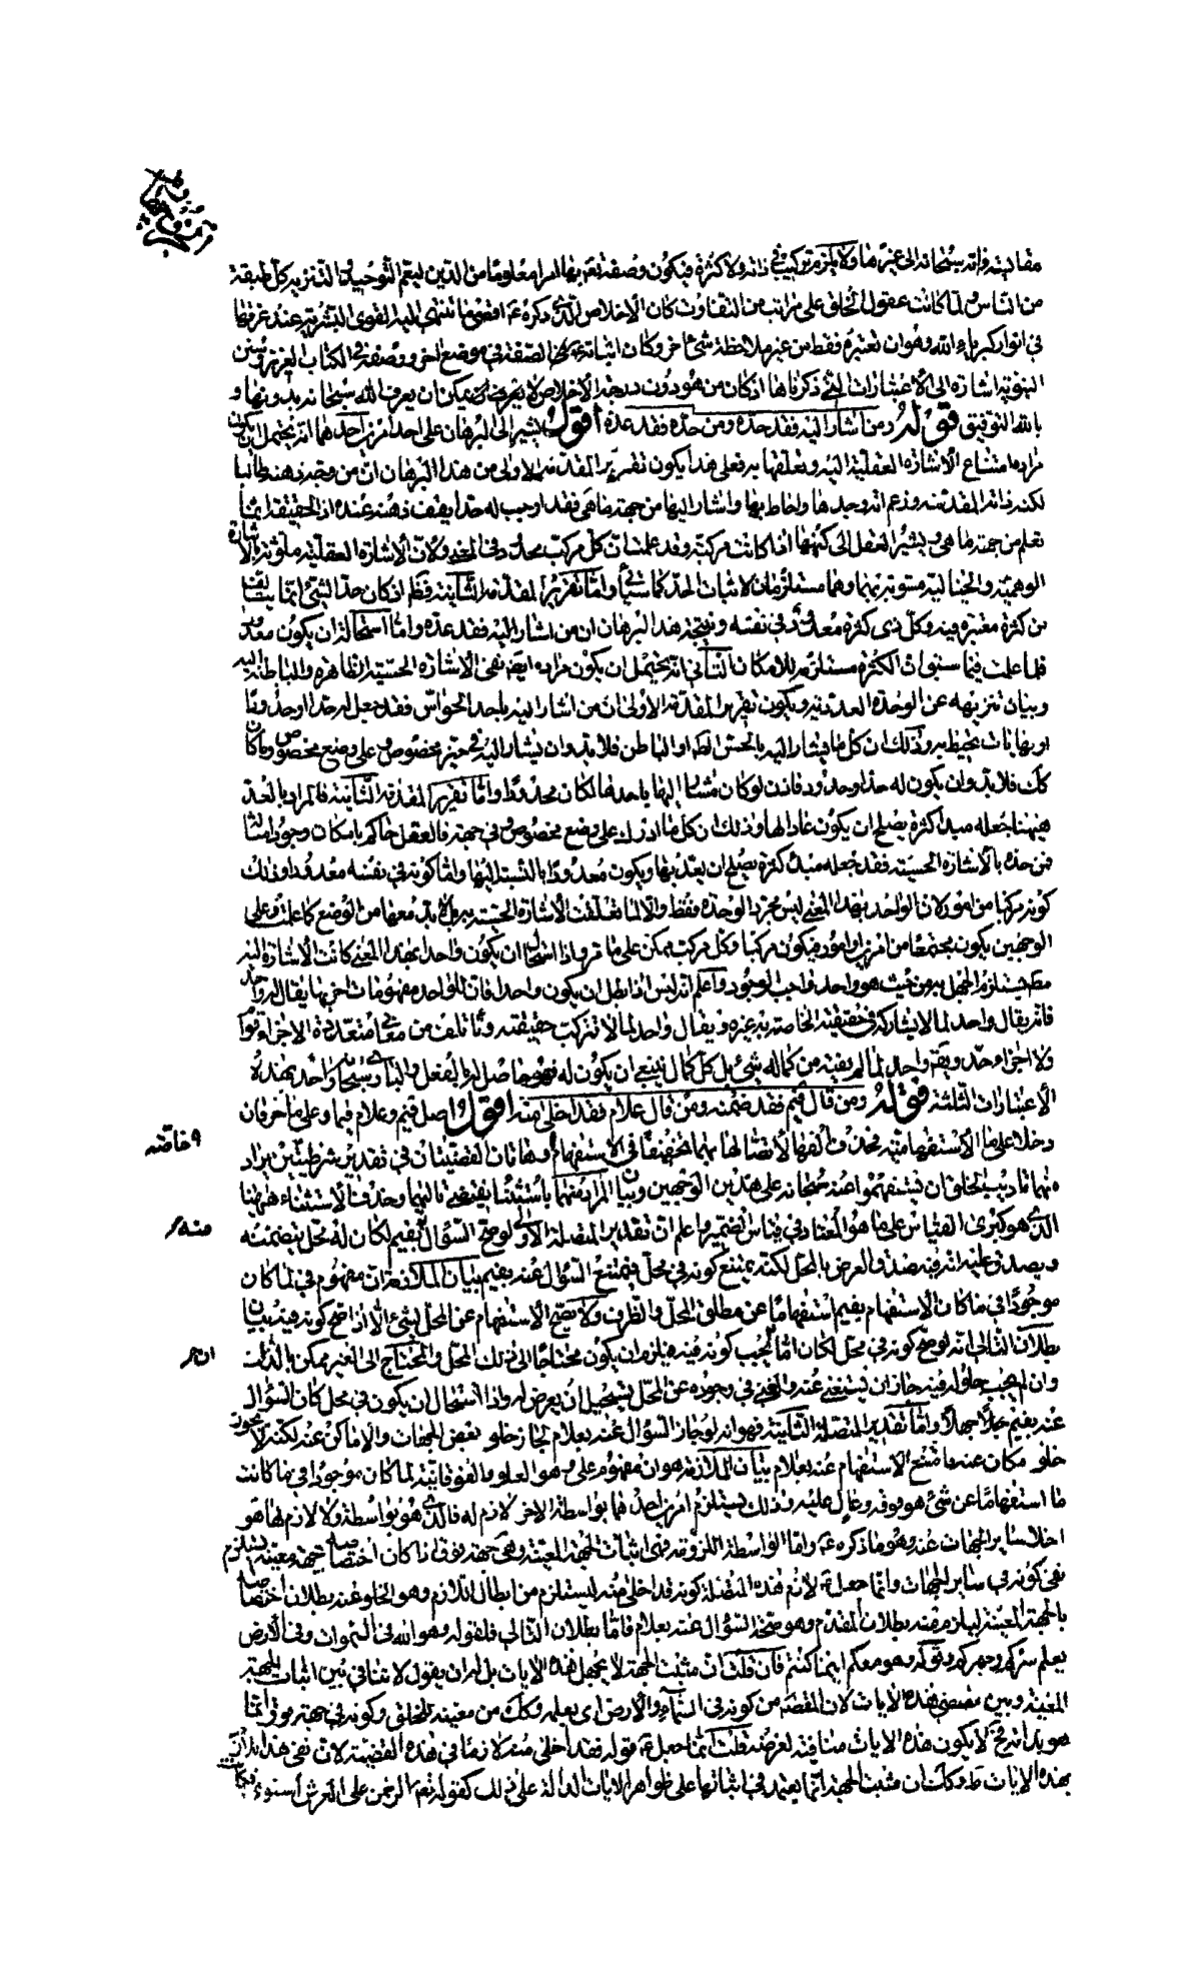 مقايسته ذاته سبحانه الى غيرها ولا يلزم تركيب في ذاته ولا كثرة فيكون وصفه تعالى بها امرا معلوما من الدين ليعم التوحيد والتنزيه كل طبقة
من الناس ولما كانت عقول الخلق على مراتب من التفاوت كان الاخلاص الذى ذكره ع اقصى ما تنتهى اليه القوى البشرية عند غرقها
في انوار كبرياء الله وهو ان تعتبره فقط من غير ملاحظة شئ اخر وكان اثباته ع الصفة في موضع اخر ووصفه في الكتاب العزيز وسنن
النبوية اشارة الى الاعتبارات التى ذكرناها اذ كان من هو دون درجة الاخلاص لا يمكن ان يعرف الله سبحانه بدونها و
بالله التوفيق قوله ومن اشار اليه فقد حده ومن حده فقد عده اقول يشير الى البرهان على احد امرين احدهما انه يحتمل ان يكون
مراده امتناع الاشارة العقلية اليه وتعلقها به فعلى هذا يكون تقرير المقدمة الاولى من هذا البرهان ان من وجه ذهنه طالبا
لكنه ذاته المقدسة وزعم انه وجدها واحاط بها واشار اليها من جهة ما هى فقد اوجب له حدا يقف ذهنه عنده اذ الحقيقة انما
تعلم من جهة ما هى ويشير العقل الى كنهها اذا كانت مركبة وقد علمت ان كل مركب محدود في المعنى ولان الاشارة العقلية ملوثة بالاشارة
الوهمية والخيالية مشوبة بهما وهما مستلزمان لاثبات الحد كما سبق واما تقرير المقدمة الثانية فظ اذ كان حد الشئ انما يتألف
من كثرة معتبرة فيه وكل ذى كثرة معدود في نفسه ونتيجة هذا البرهان ان من اشار اليه فقد عده واما استحالة ان يكون معدودا
فلما علمت فيما سبق ان الكثرة مستلزمة للامكان الثانى انه يحتمل ان يكون مراده ايضا نفى الاشارة الحسية الظاهرة والباطنة اليه
وبيان تنزيهه عن الوحدة العددية ويكون تقرير المقدمة الاولى ان من اشار اليه باحد الحواس فقد جعل له حدا او حدودا
او نهايات تحيط به وذلك ان كل ما يشار اليه بالحس الظ او الباطن فلابد وان يشار اليه في حيز مخصوص وعلى وضع مخصوص وما كان
كك فلابد وان يكون له حد او حدود فاذن لو كان مشارا اليها باحدها لكان محدودا واما تقرير المقدمة الثانية فالمراد بالعد
هيهنا جعله مبدا كثرة يصلح ان يكون عادا لها وذلك ان كل ما ادرك على وضع مخصوص وفي جهة فالعقل حاكم بامكان وجود امثاله
فمن حده بالاشارة الحسية فقد جعله مبدء كثرة يصلح ان يعد بها ويكون معدودا بالنسبة اليها واما كونه في نفسه معدودا وذلك
كونه مركبا من امور لان الواحد بهذا المعنى ليس مجرد الوحدة فقط والا لما تعلقت الاشارة الحسية به بل لابد معها من الوضع كما علمت وعلى
الوجهين يكون مجتمعا من امرين او امور فيكون مركبا وكل مركب ممكن على ما مر واذا استحال ان يكون واحدا بهذا المعنى كانت الاشارة اليه
مط يستلزم الجهل به من حيث هو واحد واجب الوجود واعلم انه ليس اذا بطل ان يكون واحدا فان للواحد مفهومات اخر بها يقال له واحد
فانه يقال واحد لما لا يشاركه في حقيقته الخاصة به غيره ويقال واحد لما لا تتركب حقيقته وتتألف من معانى متعددة الاجزاء قوام
ولا اجزاء حد ويقال واحد لما لم يفته من كماله شئ بل كل كمال ينبغى ان يكون له فهو حاصل له بالفعل والبارى سبحانه واحد بهذه
الاعتبارات الثلثة قوله ومن قال فيم فقد ضمنه ومن قال علام فقد اخلى منه اقول اصل فيم وعلام فيما وعلى ما حرفان
دخلا على ما الاستفهامية فحذف الفها لاتصالها بهما تخفيفا في الاستفهام خاصة وهاتان القضيتان في تقدير شرطيتين يراد
منهما تاديب الخلق ان يستفهموا عنه سبحانه على هذين الوجهين وبيان المراد منهما باستثناء نقيض تاليهما وحذف الاستثناء هيهنا
الذى هو كبرى القياس على ما هو المعتاد في قياس الضمير واعلم ان تقدير المتصلة الاولى لو صح السؤال عنه بفيم لكان له محل يتضمنه
ويصدق عليه انه فيه صدق العرض بالمحل لكنه يمتنع كونه في محل فيمتنع السؤال عنه بفيم بيان الملازمة ان مفهوم في لما كان
موجودا في ما كان الاستفهام بفيم استفهاما عن مطلق المحل والظرف ولا يصح الاستفهام عن المحل لشئ الا اذا صح كونه فيه بيان
بطلان التالى انه لو صح كونه في محل لكان اما ان يجب كونه فيه فيلزم ان يكون محتاجا الى ذلك المحل والمحتاج الى الغير ممكن بالذات
وان لم يجب حلوله فيه جاز ان يستغنى عنه والغنى في وجوده عن المحل يستحيل ان يعرض له واذا استحال ان يكون في محل كان السؤال
عنه بفيم جهلا واما تقدير المتصلة الثانية فهو انه لو جاز السؤال عنه بعلام لجاز خلو بعض الجهات والاماكن عنه لكنه لا يجوز
خلو مكان عنه فامتنع الاستفهام عنه بعلام بيان الملازمة هو ان مفهوم على وهو العلو والفوقانية لما كان موجودا في ما كانت
ما استفهاما عن شئ هو فوقه وعال عليه وذلك يستلزم امرين احدهما بواسطة الاخر لازم له فالذى هو بواسطة ولا لازم لها هو
اخلا سائر الجهات عنه وهو ما ذكره ع واما الواسطة اللازمة فهى اثبات الجهة المعينة وهى جهة فوق اذا كان اختصاصه بجهة معينة يستلزم
نفى كونه في سائر الجهات وانما جعل ع لازم هذه المتصلة كونه قد اخلى منه ليستلزم من ابطال اللازم وهو الخلو عنه بطلان اختصاصه
بالجهة المعينة ليلزم منه بطلان المقدم وهو صحة السؤال عنه بعلام فاما بطلان التالى فلقوله وهو الله في السموات وفي الارض
يعلم سركم وجهركم وقوله وهو معكم اينما كنتم فان قلت ان مثبت الجهة لا يجهل هذه الايات بل له ان يقول لا تنافى بين اثبات الجهة
المعينة وبين مقتضى هذه الايات لان المقصود من كونه في السماء والارض اى بعلمه وكك من معيته للخلق وكونه في جهة فوق انما
هو بذاته فح لا يكون هذه الايات منافية لغرضه قلت انما جعل ع قوله فقد اخلى منه لازما في هذه القضية لان نفى هذا بذاته
بهذه الايات ظ وكان مثبت الجهة انما يعتمد في اثباتها على ظواهر الايات الدالة على ذلك كقوله تعالى الرحمن على العرش استوى فكانت
خاصة
منه
ان